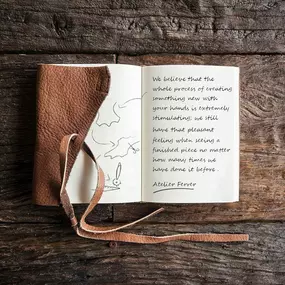 We believe that the
whole process of creating
something new with
your hands is extremely
stimulating; we still
have that pleasant
feeling when seeing a
finished piece no matter
how many times we
have done it before.
Atelier Ferver